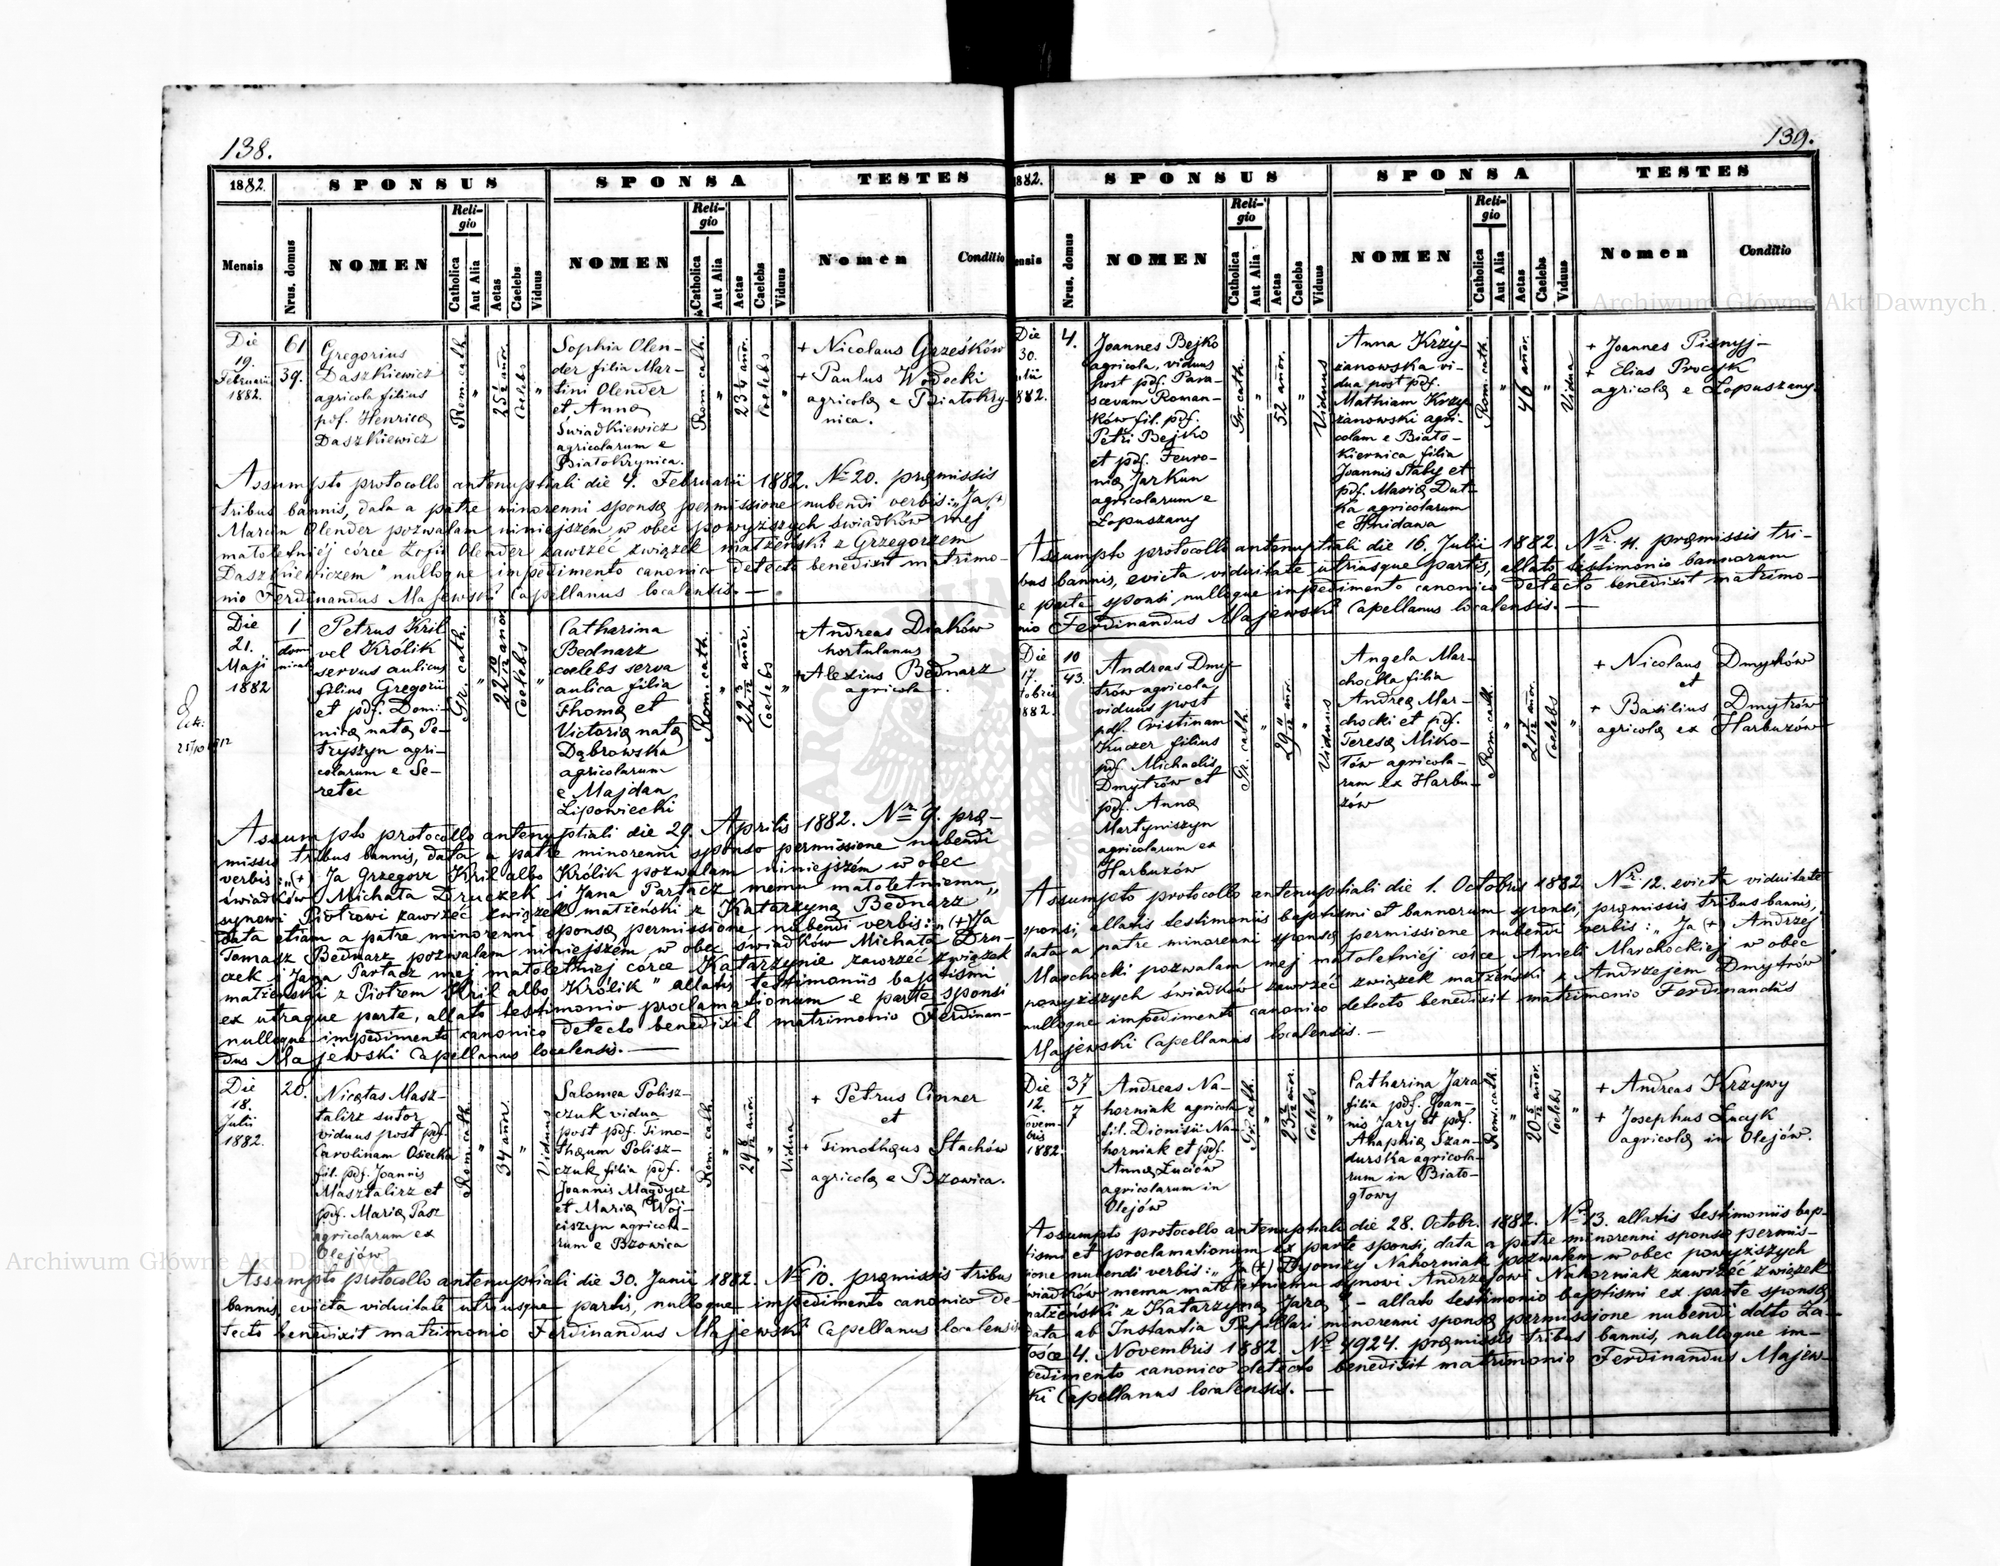 138.
1882.
SPONSUS
SPONSA
TESTES
Mensis
Nrus. domus
NOMEN
Religio
Catholica
Aut Alia
Aetas
Caelebs
Viduus
NOMEN
Religio
Catholica
Aut Alia
Aetas
Caelebs
Viduus
Nomen
Conditio
Die
19.
Februarii
1882.
61
39.
Gregorius
Daszkiewicz
agricola filius
pdf. Henricę
Daszkiewicz
Rom. cath.
"
25 1/2 añor.
Coelebs
"
Sophia Olen-
der filia Mar-
tini Olender
et Annę
Świadkiewicz
agricolarum e
Białokrynica.
Rom. cath.
"
Coelebs
"
+ Nicolaus Grześków
+ Paulus Wodecki
agricolę e Białokry-
nica.
Assumpto protocollo antenuptiali die 4. Februarii 1882. Nr 20. pręmissis
tribus bannis, data a patre minorenni sponsę permissione nubendi verbis: "Ja (+)
Marcin Olender pozwalam niniejszém w obec powyższych świadków mej
małoletniéj córce Zofii Olender zawrzéć związek małżeński z Grzegorzem
Daszkiewiczem" nulloque impedimento canonico detecto benedixit matrimo-
nio Ferdinandus Majewski Capellanus localensis. —
Die
21.
Maji
1882
1
domi
nical
Petrus Kril
vel Królik
servus aulicus
filius Gregorii
et pdf. Domi-
nicę natę Pe-
tryszyn agri-
colarum e Se-
retec
Gr. cath.
"
22 10/12 añor
Coelebs
"
Catharina
Bednarz
coelebs serva
aulica filia
Thomę et
Victorię natę
Dąbrowska
agricolarum
e Majdan
Lipowiecki
Rom. cath.
"
22 3/12 añor.
Coelebs
"
+ Andreas Diaków
hortulanus
+ Alexius Bednarz
agricola
Assumpto protocollo antenuptiali die 29. Aprilis 1882. Nr 9. prę-
missis tribus bannis, data a patre minorenni sponso permissione nubendi
verbis: "(+) Ja Grzegorz Kril albo Królik pozwalam niniejszém w obec
świadków Michała Druczek i Jana Partacz memu małoletniemu
synowi Piotrowi zawrzéć związek małżeński z Katarzyną Bednarz"
data etiam a patre minorenni sponsę permissione nubendi verbis: "(+) Ja
Tomasz Bednarz pozwalam niniejszem, w obec świadków Michała Dru-
czek i Jana Partacz mej małoletniéj córce Katarzynie zawrzéć związek
małżeński z Piotrem Kril albo Królik" allatis testimoniis baptismi
ex utraque parte, allato testimonio proclamationum e parte sponsi
nulloque impedimento canonico detecto benedixit matrimonio Ferdinan-
dus Majewski Capellanus localensis. —
Die
18.
Julii
1882.
20.
Nicolas Masz-
talirz sutor
viduus post pdf.
Carolinam Osiecka
fil. pdf. Joannis
Masztalirz et
pdf. Marię Pasz
agricolarum ex
Olejów
Rom. cath.
"
34 añor.
"
Viduus
Salomea Polisz-
czuk vidua
post pdf. Timo-
theum Polisz-
czuk filia pdf.
Joannis Magdycz
et Marię Woj-
ciszyn agricola-
rum e Bzowica
Rom. cath.
"
29 8/12 añor.
"
Vidua
+ Petrus Cinner
et
+ Timothęus Stachów
agricolę e Bzowica.
Assumpto protocollo antenuptiali die 30. Junii 1882. Nr 10. pręmissis tribus
bannis, evicta viduitate utriusque partis, nulloque impedimento canonico de-
tecto benedixit matrimonio Ferdinandus Majewski Capellanus localensis
139.
1882.
SPONSUS
SPONSA
TESTES
Nrus. domus
NOMEN
Religio
Catholica
Aut Alia
Aetas
Caelebs
Viduus
NOMEN
Religio
Catholica
Aut Alia
Aetas
Caelebs
Viduus
Nomen
Conditio
Die
30.
Julii
1882.
4.
Joannes Bejko
agricola, viduus
post pdf. Para-
scevam Roman-
ków fil. pdf.
Petri Bejko
et pdf. Feuro-
nię Jarkun
agricolarum e
Łopuszany
Gr. cath.
"
52 añor.
"
Viduus
Anna Krzy-
żanowska vi-
dua post pdf.
Mathiam Krzy-
żanowski agri-
colam e Biało-
kiernica filia
Joannis Słaby et
pdf. Marię Dut-
ka agricolarum
e Hnidawa
Rom. cath.
"
46 añor.
"
Vidua
+ Joannes Pisnyj-
+ Elias Procyk
agricolę e Łopuszany.
Assumpto protocollo antenuptiali die 16. Julii 1882. Nr. 11. pręmissis tri-
bus bannis, evicta viduitate utriusque partis, allato testimonio bannorum
e parte sponsi, nulloque impedimento canonico detecto benedixit matrimo-
nio Ferdinandus Majewski Capellanus localensis. —
Die
17.
tobris
1882.
10
43.
Andreas Dmy-
trów agricola
viduus post
pdf. Cristinam
Kuczer filius
pdf. Michaelis
Dmytrów et
pdf. Annę
Martyniszyn
agricolarum ex
Harbuzów
Gr. cath.
"
29 11/12 añor.
"
Viduus
Angela Mar-
chocka filia
Andreę Mar-
chocki et pdf.
Teresę Miko-
łów agricola-
rum ex Harbu-
zów
Rom. cath.
"
Coelebs
"
+ Nicolaus Dmytrów
et
+ Basilius Dmytrów
agricolę ex Harbuzów
Assumpto protocollo antenuptiali die 1. Octobris 1882. Nr. 12. evicta viduitate
sponsi, allatis testimoniis baptismi et bannorum sponsi, pręmissis tribus bannis,
data a patre minorenni sponsę permissione nubendi verbis: "Ja (+) Andrzej
Marchocki pozwalam mej małoletniéj córce Anieli Marchockiej w obec
powyższych świadków zawrzéć związek małżeński z Andrzejem Dmytrów"
nulloque impedimento canonico detecto benedixit matrimonio Ferdinandus
Majewski Capellanus localensis. —
Die
12.
ovem-
bris
1882
37
7
Andreas Na-
horniak agricola
fil. Dionisii Na-
horniak et pdf.
Annę Łuciów
agricolarum in
Olejów
Gr. cath.
"
23 2/12 añor.
Coelebs
"
Catharina Jara
filia pdf. Joan-
nis Jary et pdf.
Ahaphię Szan-
durska agricola-
rum in Biało-
głowy
Rom. cath.
"
20 5/12 añor.
Coelebs
"
+ Andreas Krzywy
+ Josephus Łucyk
agricolę in Olejów.
Assumpto protocollo antenuptiali die 28. Octobr. 1882. Nr 13. allatis testimoniis bap-
tismi et proclamationum ex parte sponsi, data a patre minorenni sponso permis-
sione nubendi verbis: "Ja (+) Dyonizy Nahorniak pozwalam w obec powyższych
świadków memu małoletniemu synowi Andrzejowi Nahorniak zawrzéć związek
małżeński z Katarzyną Jarą" - allato testimonio baptismi ex parte sponsę
data ab Instantia Pupillari minorenni sponsę permissione nubendi ddto Za-
łośce 4. Novembris 1882. Nr 4924. pręmissis tribus bannis, nulloque im-
pedimento canonico detecto benedixit matrimonio Ferdinandus Majew-
ski Capellanus localensis. —
Archiwum Główne Akt Dawnych
Archiwum Główne Akt Dawnych